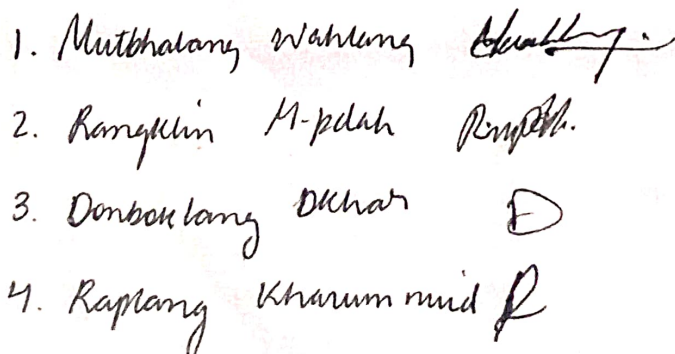 1. Mutbhalang Wahlang
2. Rangklin M-pdah
3. Donboklang Dkhar D
4. Raplang Kharummuid R